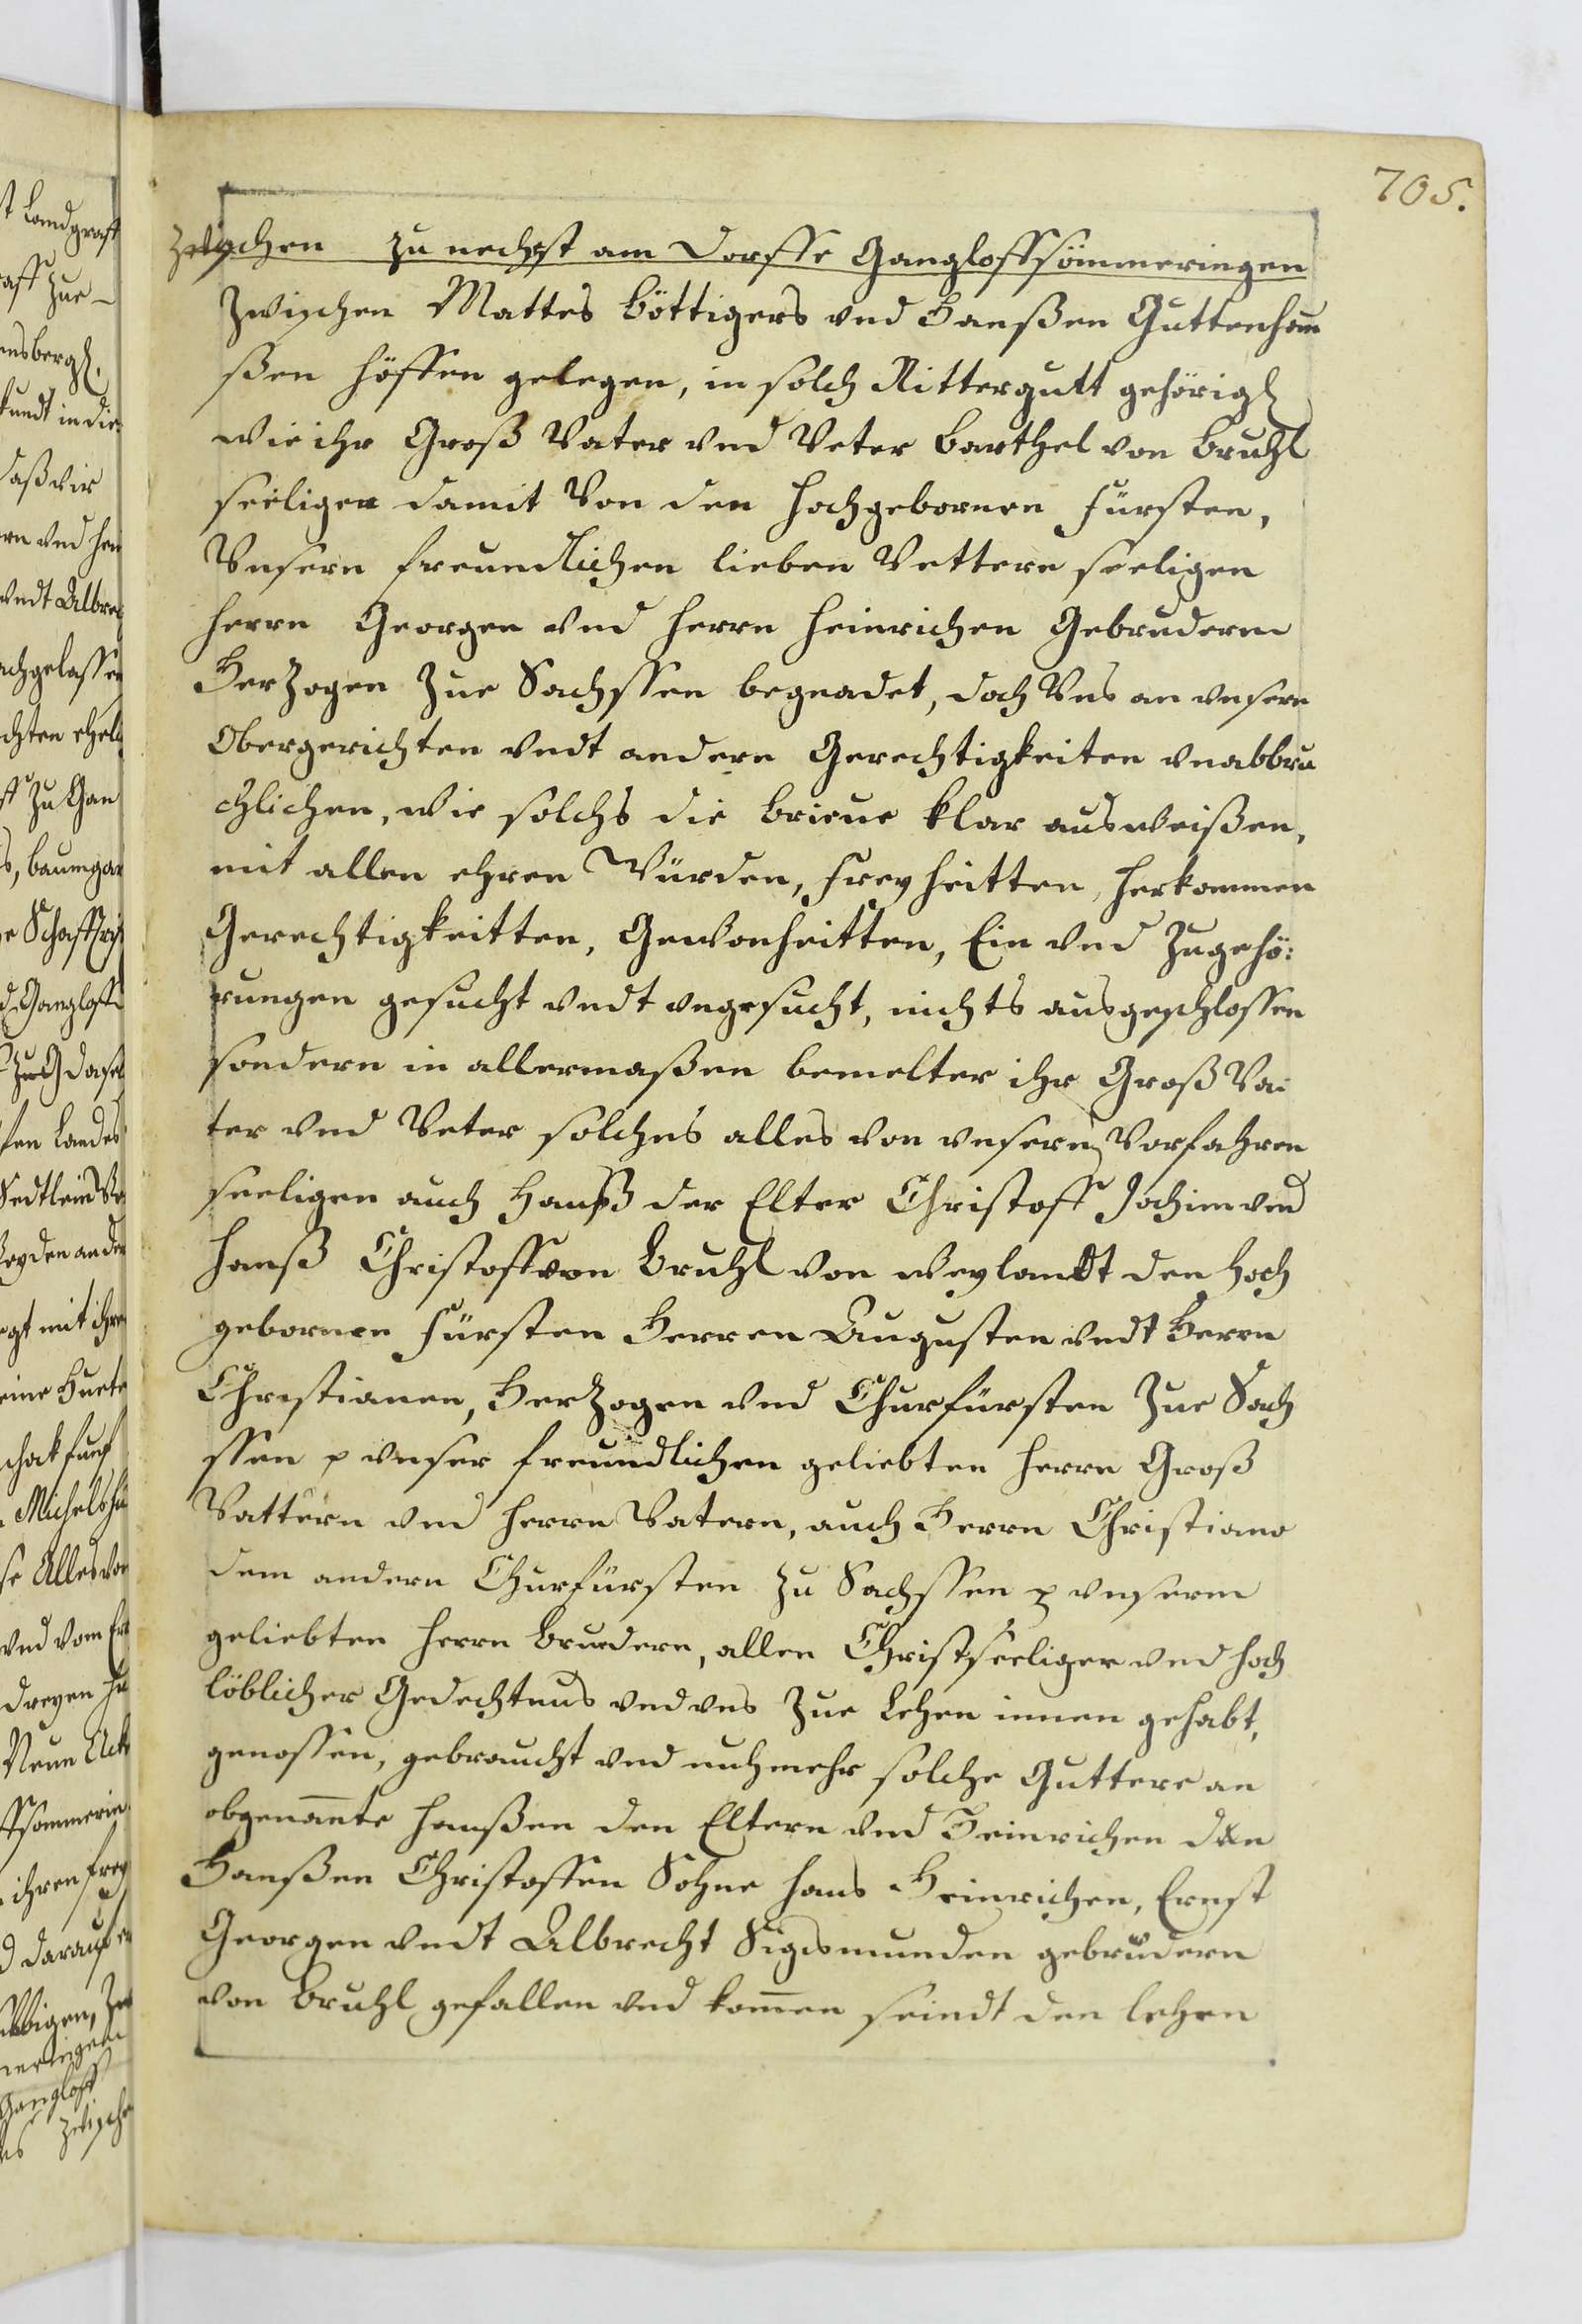 705.
zwischen zu nechst am Dorffe Gangloffsömmeringen
Zwischen Mattes Böttigers vnd Hanßen Guttenhau
ßen höffen gelegen, in solch Rittergutt gehörigk
wie ihr Groß Vater vnd Veter Barthel von Bruhl
seeligen damit Von den hochgebornen fürsten,
Vnsern freundlichen lieben Vettern seeligen
herrn Georgen vnd herrn Heinrichen Gebrudern
Herzogen Zue Sachssen begnadet, doch Vns an vnsern
Obergerichten vndt andern Gerechtigkeiten vnabbru
chlichen, wie solchs die brieue klar ausweißen,
mit allen ehren Würden, freyheitten, herkommen
Gerechtigkeitten, Gewonheitten, Ein vnd Zugehö:
rungen gesucht vndt vngesucht, nichts ausgeschlossen
sondern in allermaßen bemelter ihr Groß Va:
ter vnd Veter solches alles von vnsern Vorfahren
seeligen auch Hanß der Elter Christoff Jochim vnd
Hanß Christoff von Bruhl von weylandt den hoch
gebornen fürsten Herren Augusten vndt Herrn
Christianen, Herzogen vnd Churfürsten Zue Sach
ssen p vnser freundlichen geliebten herrn Groß
Vattern vnd herrn Vatern, auch Herrn Christiano
dem andern Churfürsten zu Sachssen p vnserm
geliebten herrn Brudern, allen Christseeliger vnd hoch
löblicher Gedechtnus vnd vns Zue Lehen innen gehabt,
genossen, gebraucht vnd nuhmehr solche Guttere an
obgenante Hanßen den Eltern vnd Heinrichen den
Hanßen Christoffen Sohne Hans Heinrichen, Ernst
Georgen vndt Albrecht Sigismunden gebrüdern
von Bruhl gefallen vnd kommen seindt den lehen